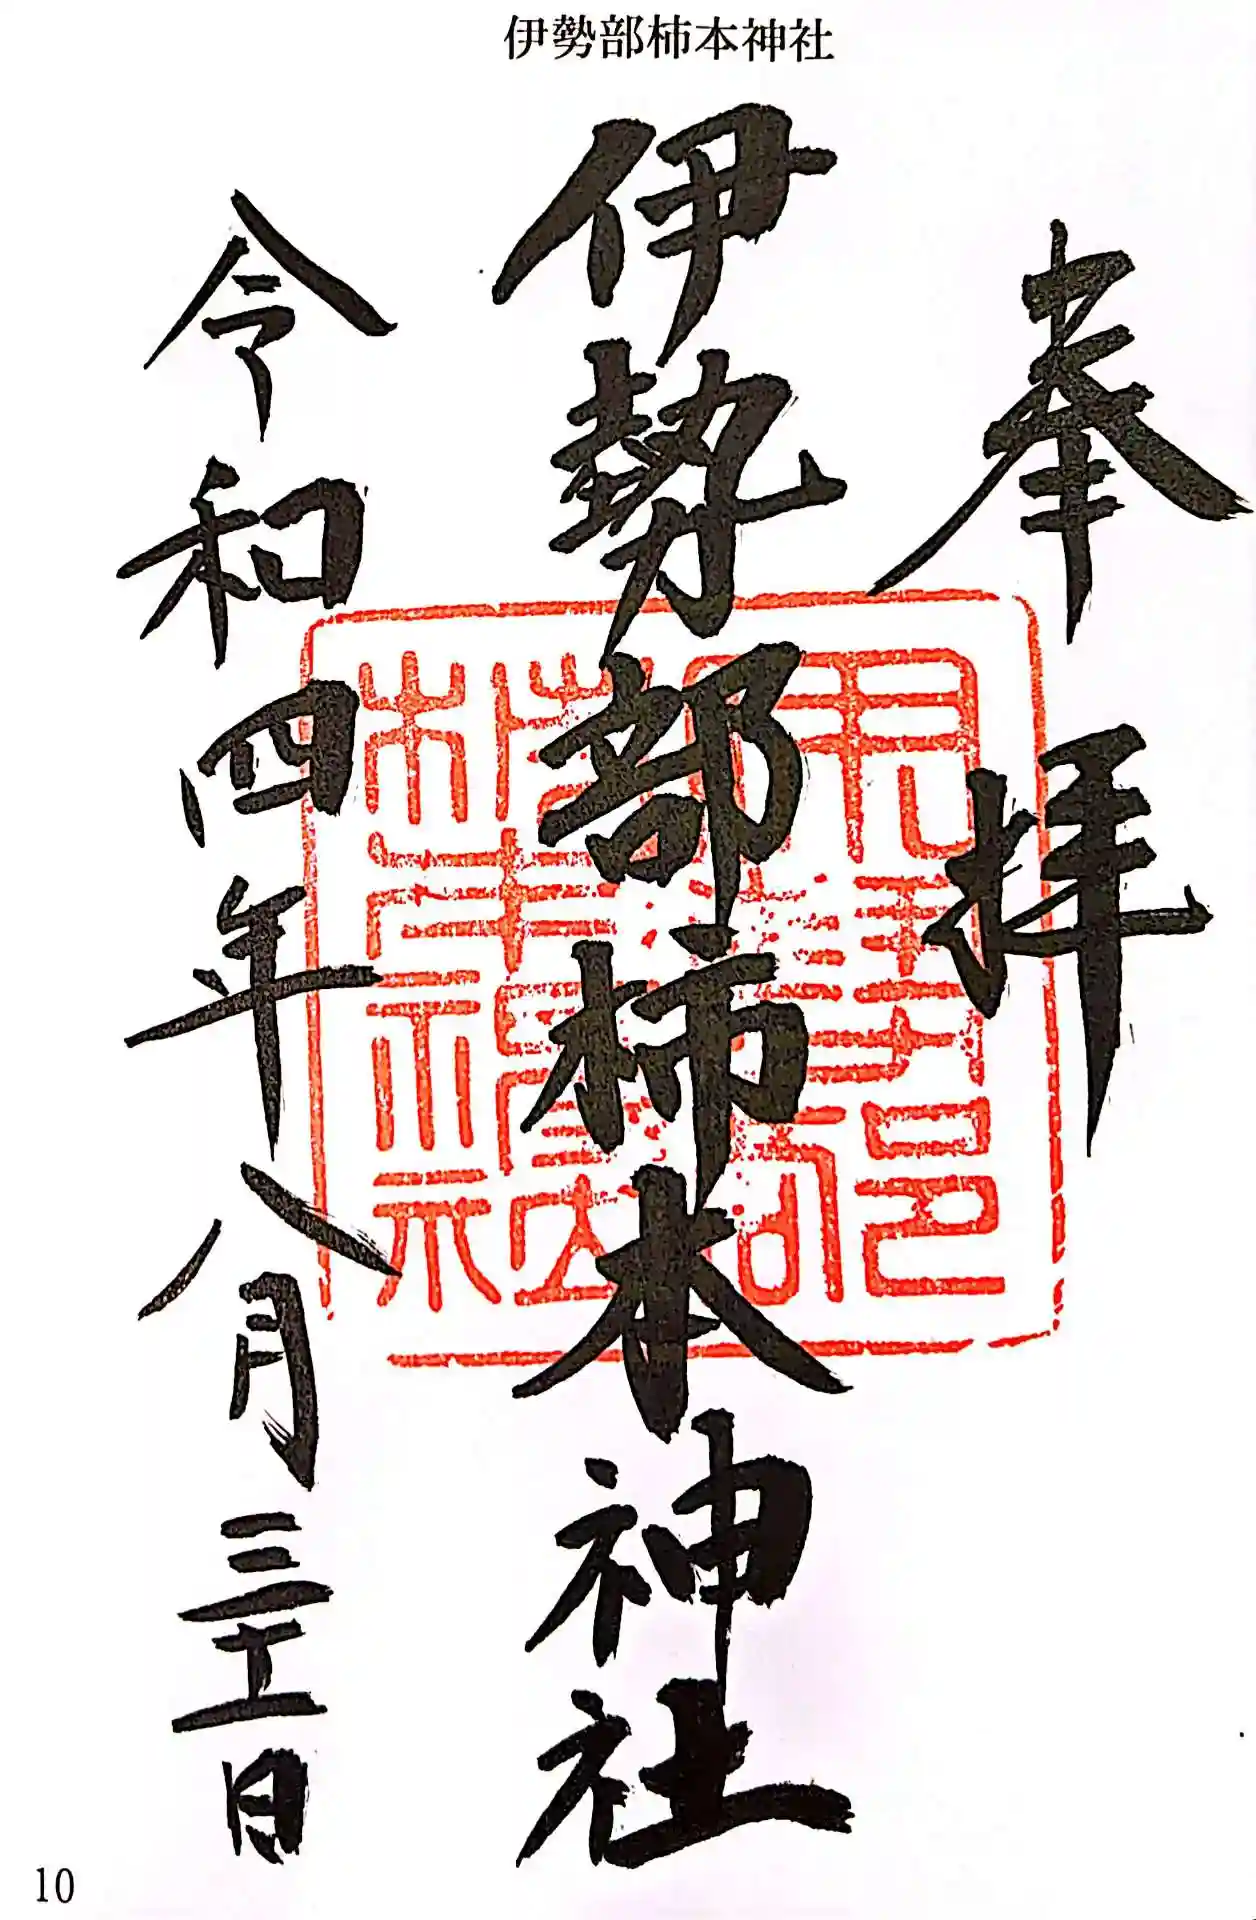 伊勢部柿本神社
奉拝
伊勢部柿本神社
令和四年八月三十一日
10